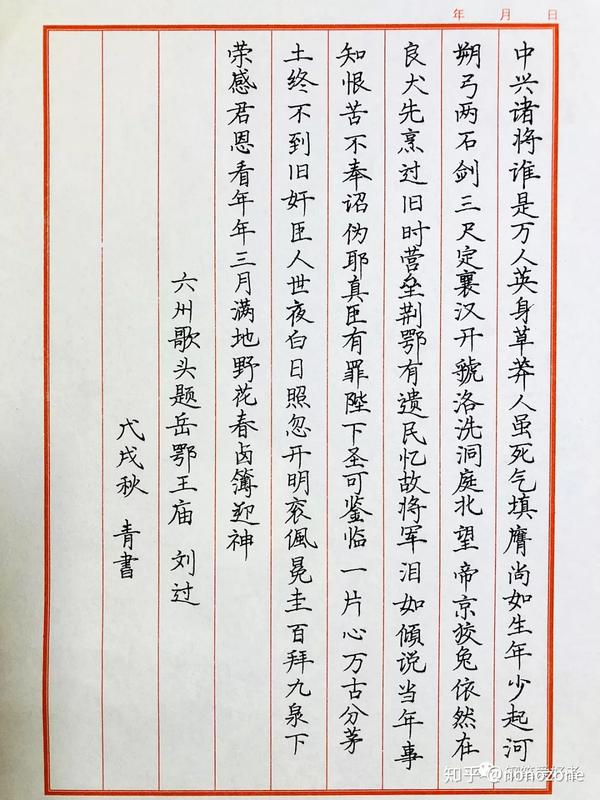 年 月 日
中兴诸将谁是万人英身草莽人虽死气填膺尚如生年少起河
朔弓两石剑三尺定襄汉开虢洛洗洞庭北望帝京狡兔依然在
良犬先烹过旧时营垒荆鄂有遗民忆故将军泪如倾说当年事
知恨苦不奉诏伪耶真臣有罪陛下圣可鉴临一片心万古分茅
土终不到旧奸臣人世夜白日照忽开明衮佩冕圭百拜九泉下
荣感君恩看年年三月满地野花春卤簿迎神
六州歌头题岳鄂王庙 刘过
戊戌秋 青書
知乎 @nonozone